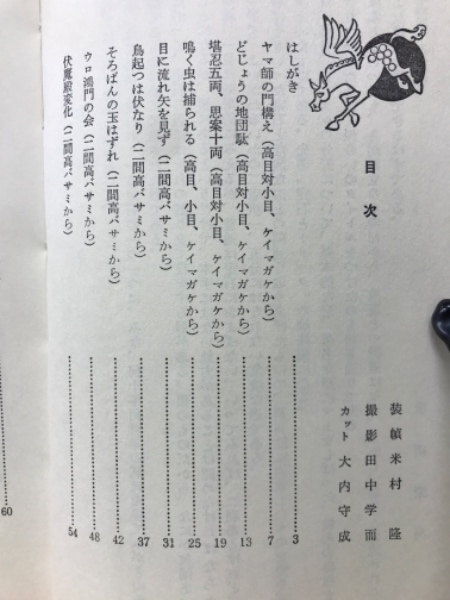 目次
装幀 米村隆
撮影 田中学而
カット 大内守成
はしがき……3
ヤマ師の門構え（高目対小目、ケイマガケから）……7
どじょうの地団駄（高目対小目、ケイマガケから）……13
堪忍五両、思案十両（高目対小目、ケイマガケから）……19
鳴く虫は捕られる（高目、小目、ケイマガケから）……25
目に流れ矢を見ず（二間高バサミから）……31
鳥起つは伏なり（二間高バサミから）……37
そろばんの玉はずれ（二間高バサミから）……42
ウロ鴻門の会（二間高バサミから）……48
伏魔殿変化（二間高バサミから）……54
60